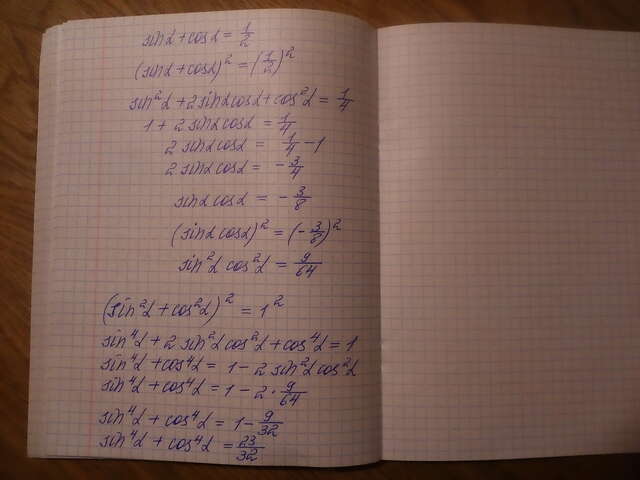 sinα + cosα = 1/2
(sinα + cosα)² = (1/2)²
sin²α + 2sinαcosα + cos²α = 1/4
1 + 2 sinαcosα = 1/4
2 sinαcosα = 1/4 - 1
2 sinαcosα = - 3/4
sinα cosα = - 3/8
(sinα cosα)² = (- 3/8)²
sin²α cos²α = 9/64
(sin²α + cos²α)² = 1²
sin⁴α + 2 sin²α cos²α + cos⁴α = 1
sin⁴α + cos⁴α = 1 - 2 sin²α cos²α
sin⁴α + cos⁴α = 1 - 2 · 9/64
sin⁴α + cos⁴α = 1 - 9/32
sin⁴α + cos⁴α = 23/32